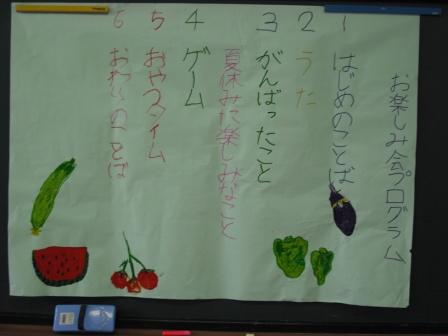 お楽しみ会プログラム
1 はじめのことば
2 うた
3 がんばったこと
夏休みに楽しみなこと
4 ゲーム
5 おやつタイム
6 おわりのことば